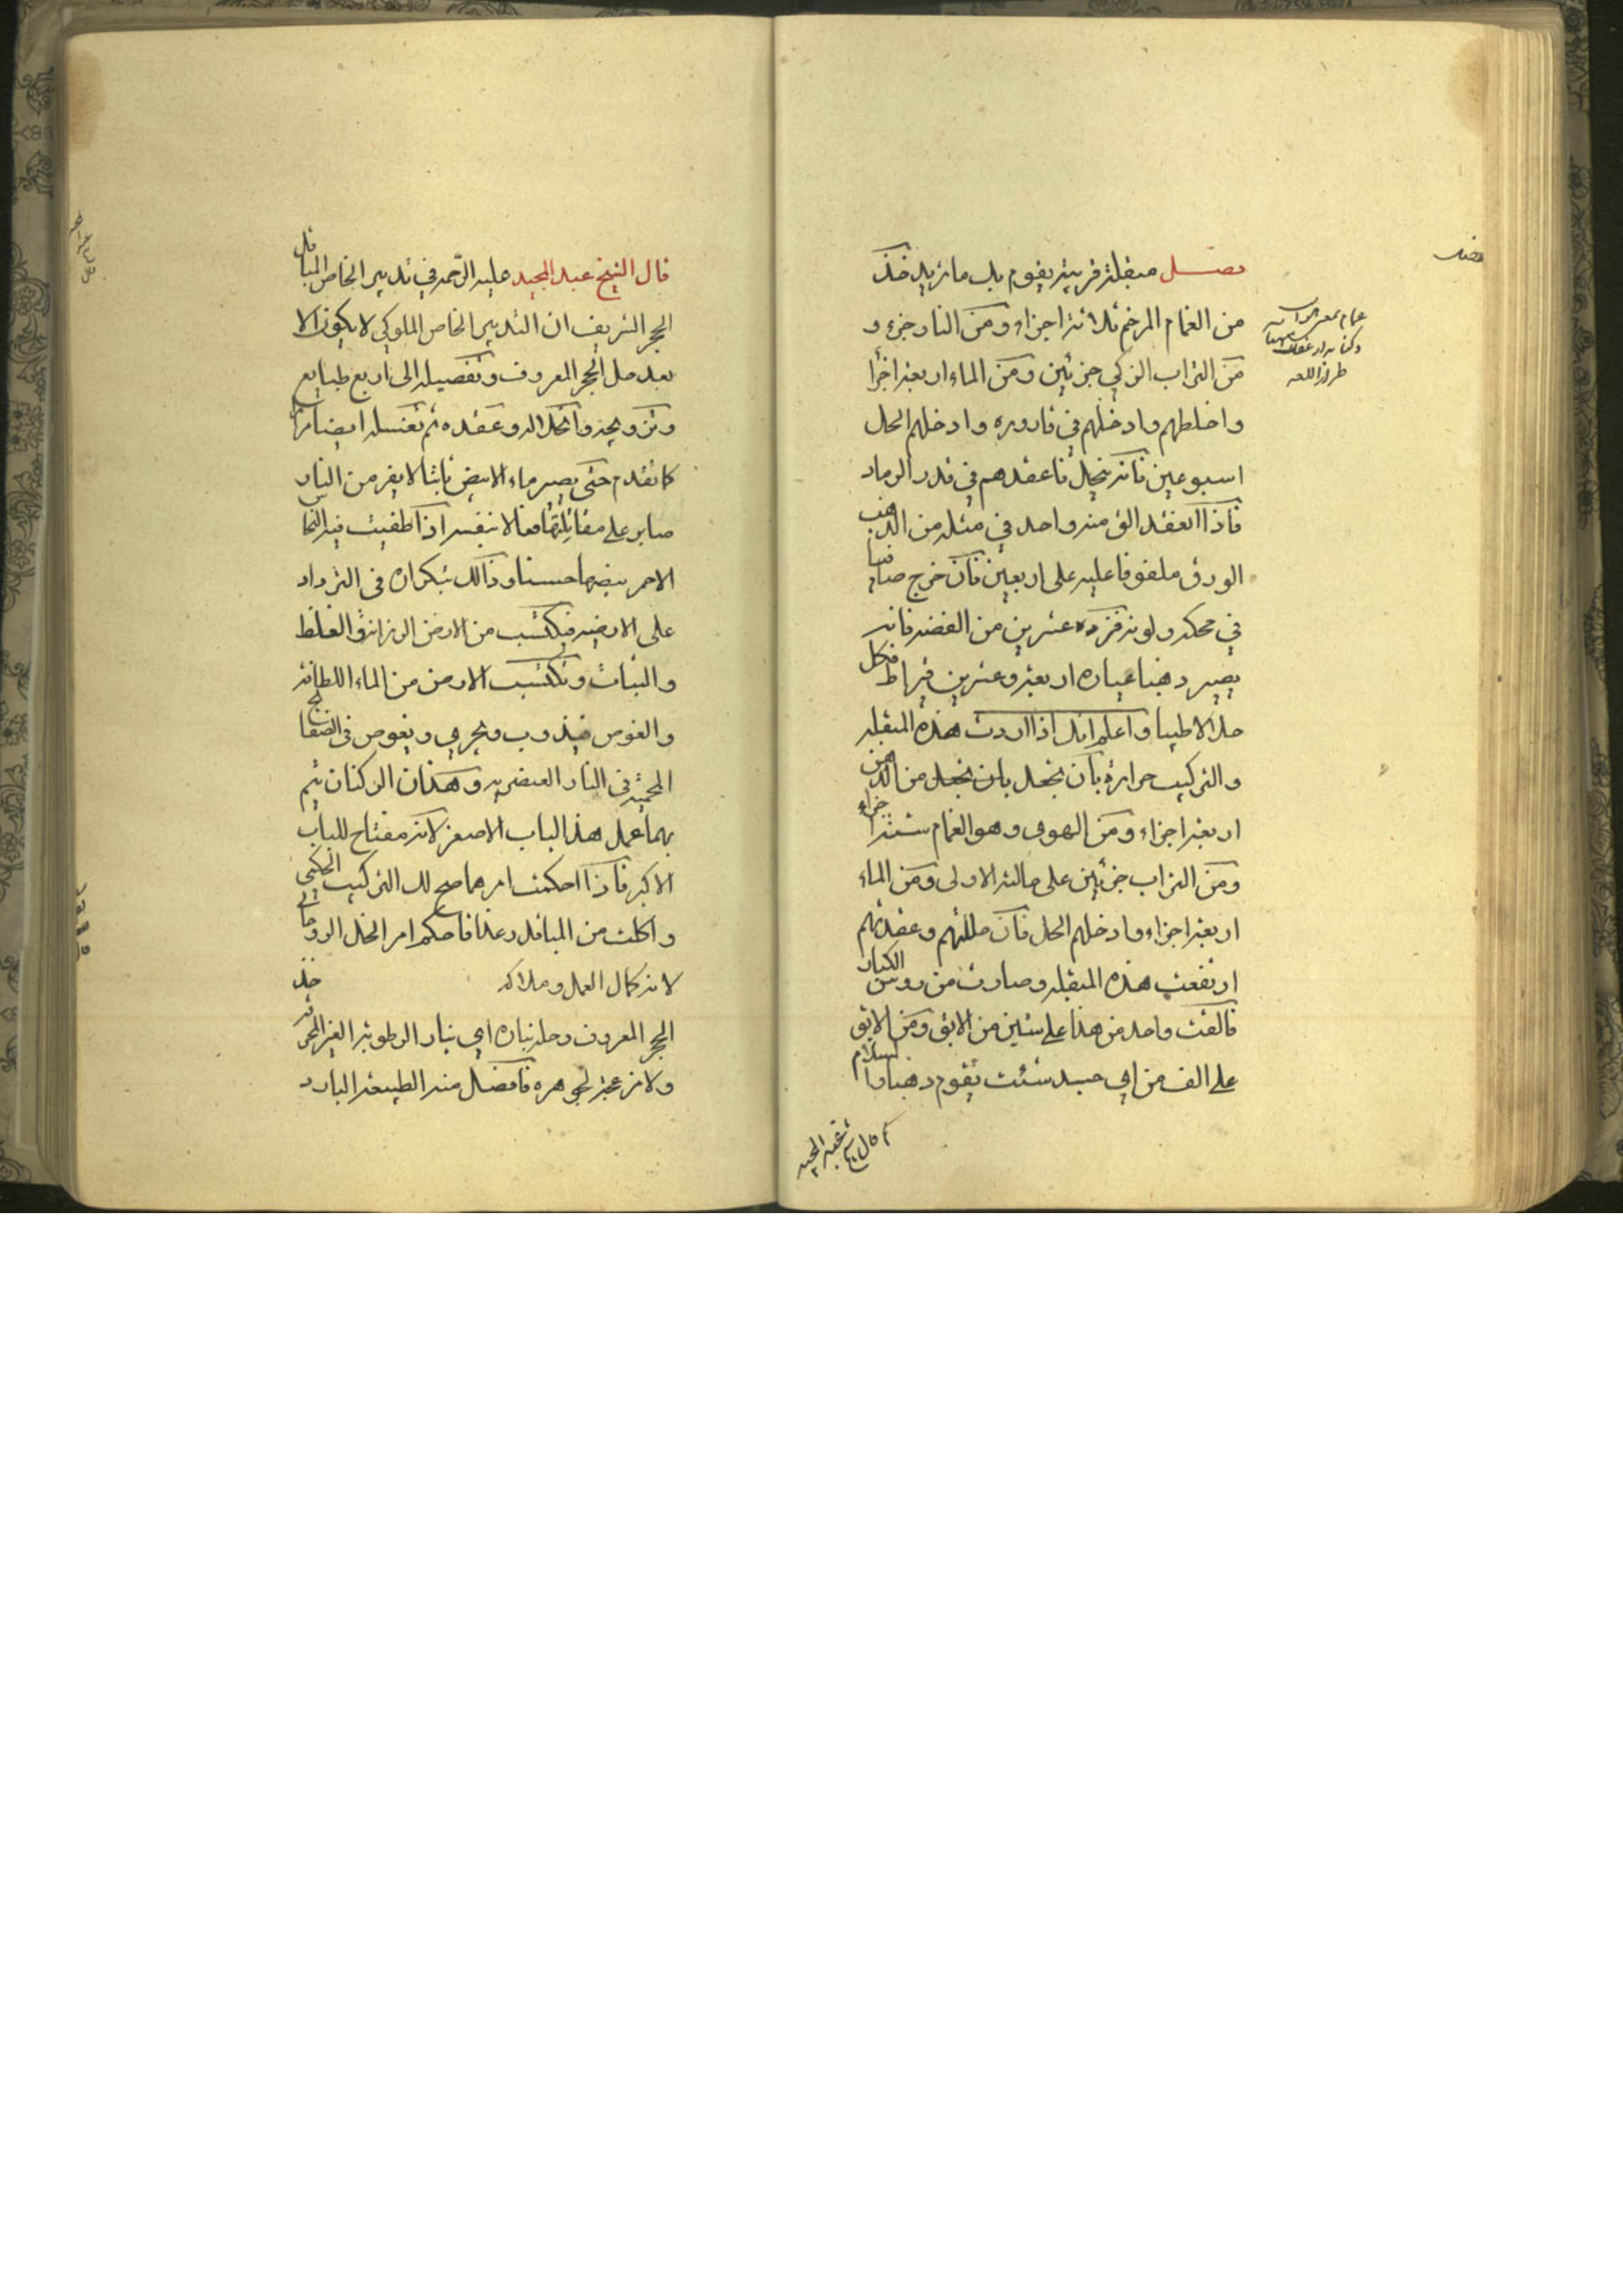 فصل مبقلة قريبة يقوم بك ما تريد خذ
من الغمام المرخم ثلاثة اجزاء ومن النار جزء و
من التراب الزكي جزئين ومن الماء اربعة اجزا
واخلطهم وادخلهم في قاروره وادخلهم الحل
اسبوعين فانه ينحل فاعقدهم في قدر الرماد
فاذا انعقد الق منه واحد في مثله من الذهب
الورق ملغوفا عليه على اربعين فان خرج صافيا
في محكه ولونه فزده عشرين من الفضه فانه
يصير دهبا عياره اربعة وعشرين قيراط فكل
حلالا طيبا واعلم انك اذا اردت هذه المبقله
والتركيب حرارة بان تجعل بان تجعل من الدهن
اربعة اجزاء ومن الهوى وهو الغمام ستة اجزاء
ومن التراب جزئين على حالته الاولى ومن الماء
اربعة اجزاء وادخلهم الحل فان حللتهم وعقدتهم
ارتفعت هذه المبقله وصارت من روس الكبار
فالقت واحد من هذا على ستين من الابق ومن الابق
على الف من اي جسد شئت يقوم دهبا والسلام
قال الشيخ عبد المجيد
قال الشيخ عبد المجيد عليه الرحمه في تدبير الخاص المباقل
الحجر الشريف ان التدبير الخاص الملوكي لا يكون الا
بعد حل الحجر المعروف وتفصيله الى اربع طبايع
وتزويجه وانحلاله وعقده ثم تغسله ايضا
كما تقدم حتى يصير ماء الابيض ثابتا لا يفر من النار
صابر على مقاتلتها معا لا بنفسه اذا طفيت فيه النحاس
الاحمر بيضها حسنا وذالك بتكراره في الترداد
على الارضيه فيكتسب من الارض الرزانة والغلظ
والثبات وتكتسب الارض من الماء اللطافة
والغوص فيذوب ويجري ويغوص في الصفايح
المحمية في النار العنصريه وهذان الركنان يتم
بهما عمل هذا الباب الاصغر لانه مفتاح للباب
الاكبر فاذا احكمت امرهما صح لك التركيب الحكمي
واكلت من المباقل رغدا فاحكم امر الخل الروحاني
لانه كمال العمل وملاكه خذ
الحجر المعروف وحله بناره اي بنار الرطوبة الغير المحرقة
ولا مزعجة لجوهره فافصل منه الطبيعة البارد